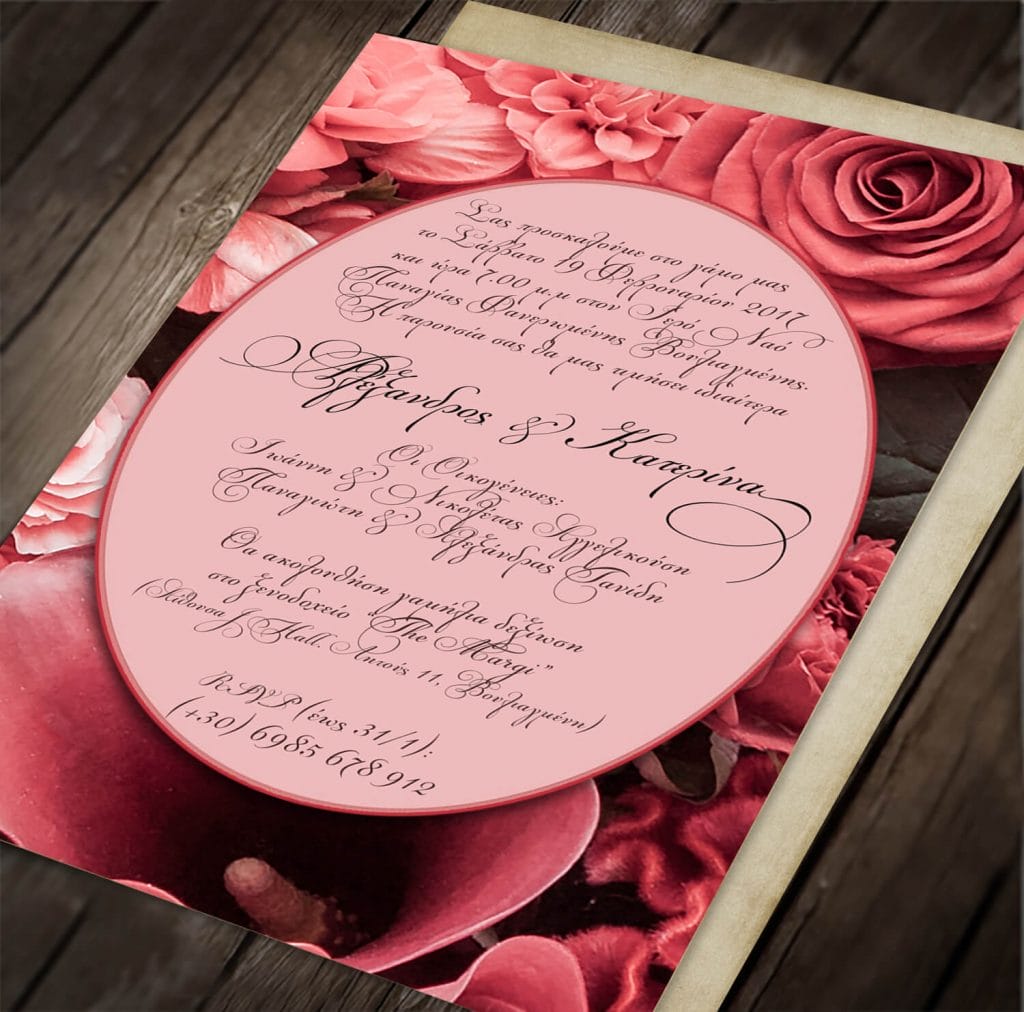 Σας προσκαλούμε στο γάμο μας
το Σάββατο 19 Φεβρουαρίου 2017
και ώρα 7.00 μ.μ στον Ιερό Ναό
Παναγίας Φανερωμένης Βουλιαγμένης.
Η παρουσία σας θα μας τιμήσει ιδιαίτερα
Αλέξανδρος & Κατερίνα
Οι Οικογένειες:
Ιωάννη & Νικολέτας Αγγελικούση
Παναγιώτη & Αλεξάνδρας Γανίδη
Θα ακολουθήση γαμήλια δεξίωση
στο ξενοδοχείο "The Margi"
(Αίθουσα J Hall. Λητούς 11, Βουλιαγμένη)
RSVP (έως 31/1):
(+30) 6985 678 912